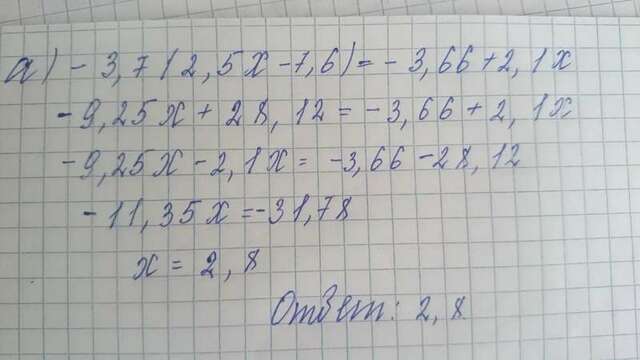 а) - 3,7(2,5x-7,6)=-3,66+2,1x
-9,25x+28,12=-3,66+2,1x
-9,25x-2,1x=-3,66-28,12
-11,35x=-31,78
x=2,8
Ответ: 2,8.